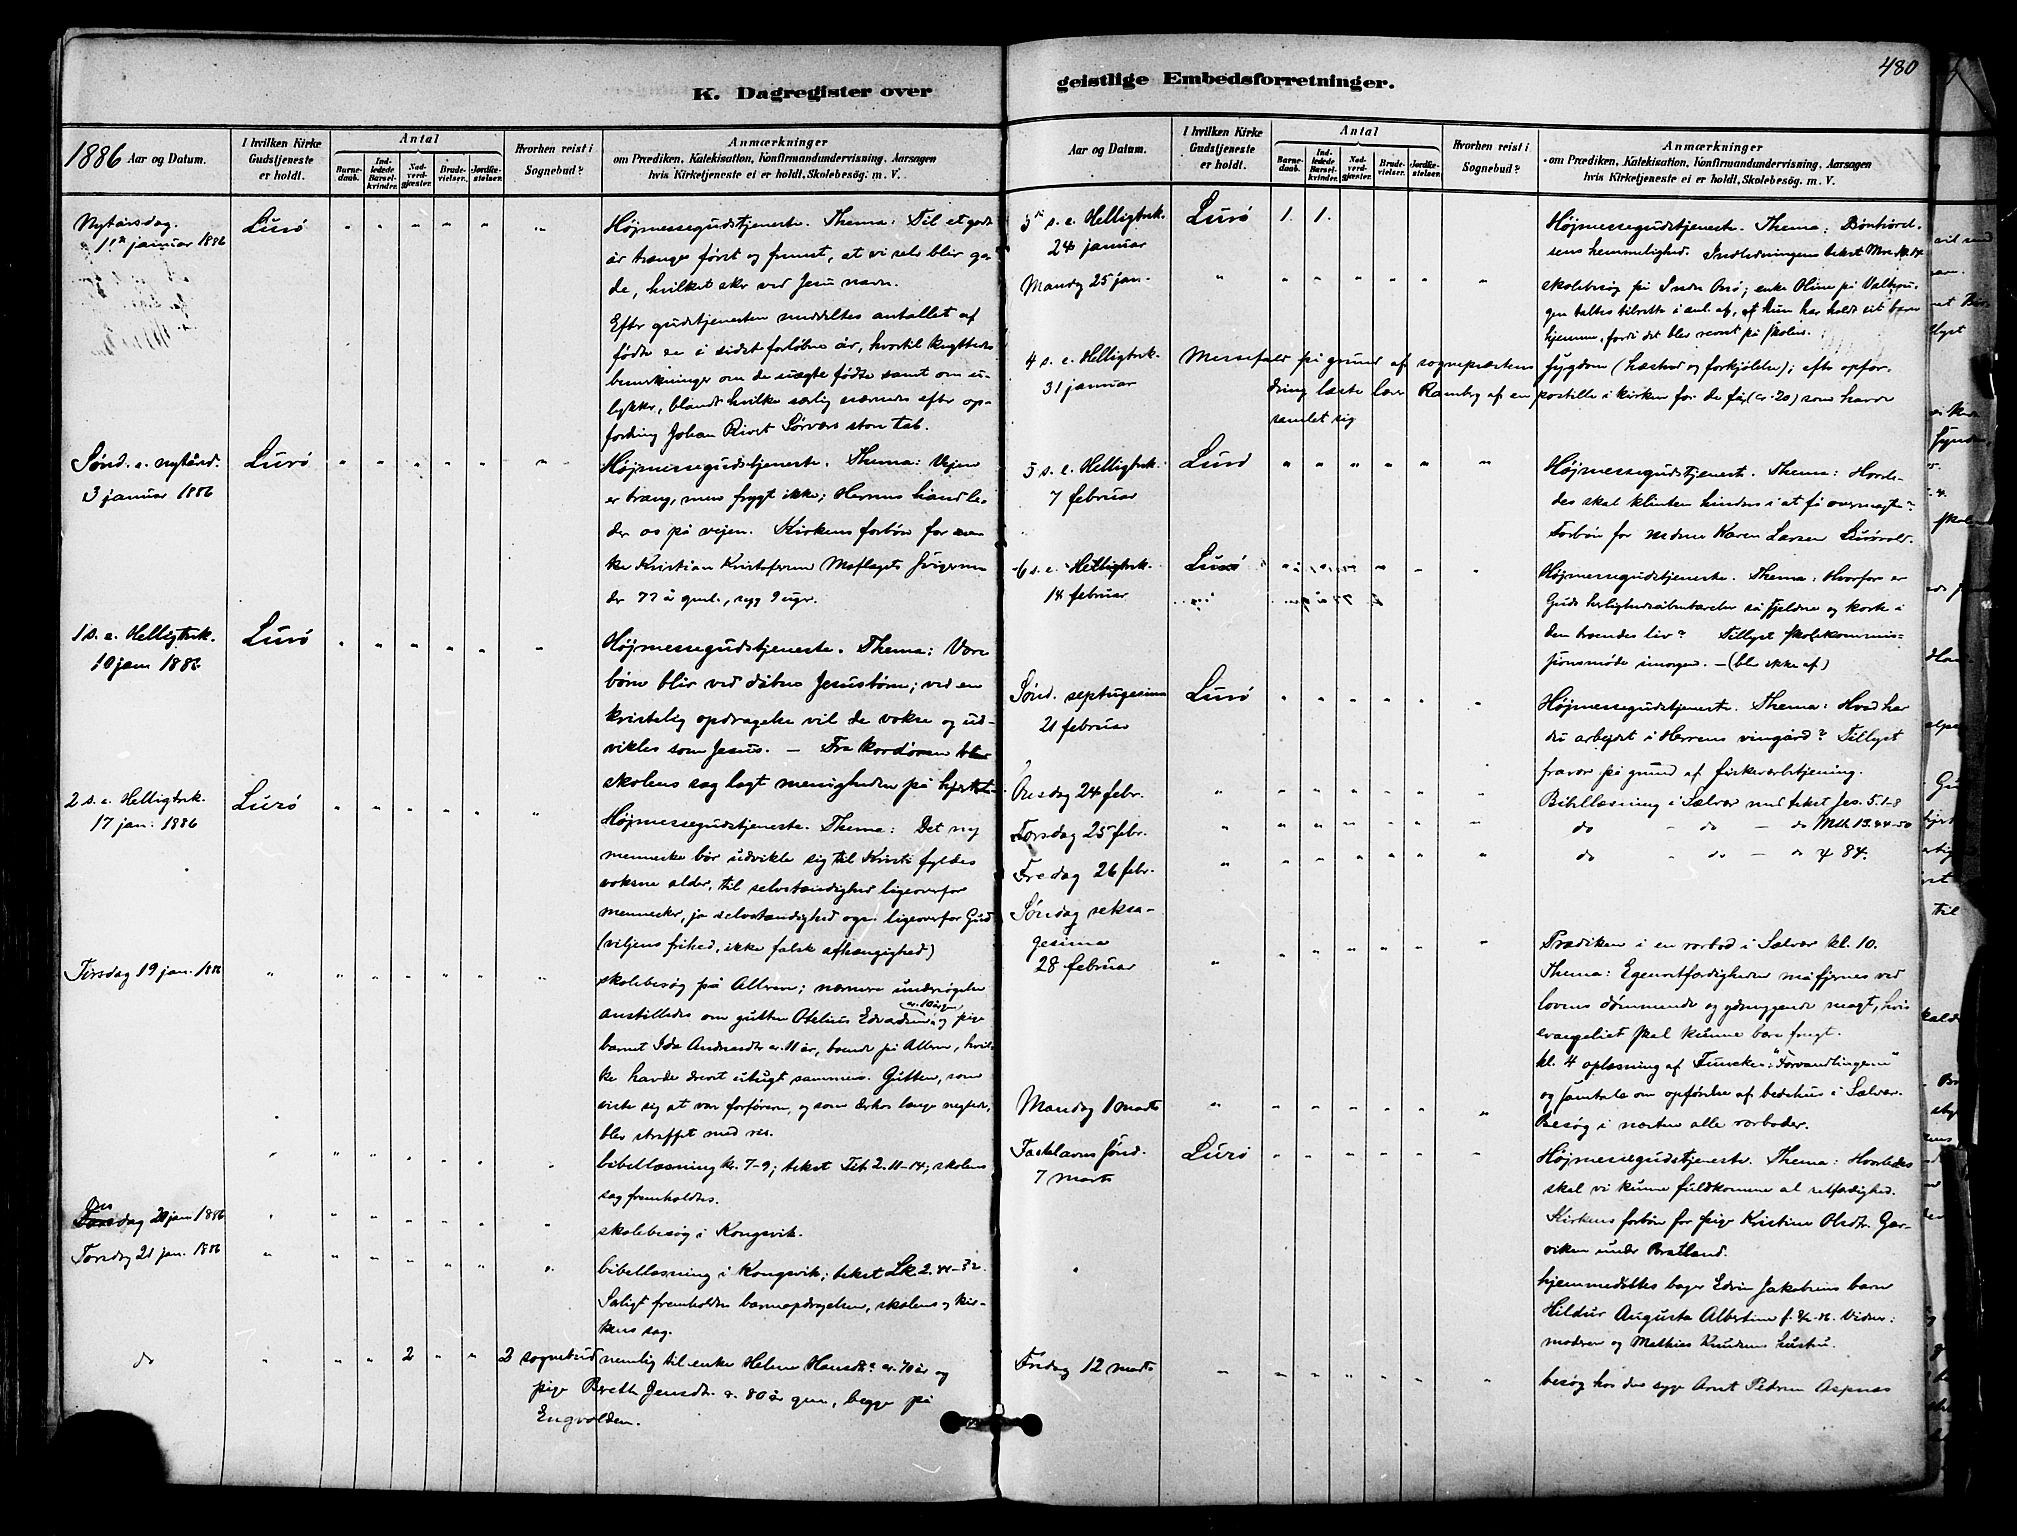 K. Dagregister over
1886 Aar og Datum.
I hvilken Kirke Gudstjeneste er holdt.
Antal
Barnedaab.
Indledede Barselkvinder.
Nadverdgjæster.
Brudevielser.
Jordfæstelser.
Hvorhen reist i Sognebud?
Anmærkninger
om Prædiken, Katekisation, Konfirmandundervisning, Aarsagen
hvis Kirketjeneste ei er holdt, Skolebesøg. m. V.
Nytårsdag. Lurö
1ste januar 1886
Højmessegudstjeneste. Thema: Til et godt
år trænges først og fremst, at vi selv blir go-
de, hvilket sker ved Jesu navn.
Efter gudstjenesten meddeltes antallet af
fødte i sidst forløbne år, hvortil knyttedes
bemerkninger om de uægte fødte samt om u-
lykker, blandt hvilke særlig nævnedes efter op-
fordring Johan Sørværs store tab.
Sønd. e. nytård. Lurö
3 januar 1886
Højmessegudstjeneste. Thema: Vejen
er trang, men frygt ikke; Herrens hånd le-
der os på vejen. Kirkens forbøn for en-
ke Kristian
der 77 år gml., syg 9 uger.
1 s. e. Helligtrek. Lurö
10 jan 1886
Højmessegudstjeneste. Thema: Vore
børn blir ved dåben Jesusbørn; ved en
kristelig opdragelse vil de vokse og ud-
vikles som Jesus. — Fra kordøren blev
skolens sag lagt menigheden på hjertet.
2 s. e. Helligtrek. Lurö
17 jan. 1886
Højmessegudstjeneste. Thema: Det ny
menneske bør udvikle sig til Kristi fyldes
voksne alder, til selvstændighed ligeoverfor
mennesker, ja selvstændighed ogs. ligeoverfor Gud
(viljens frihed, ikke falsk afhængighed)
Tirsdag 19 jan. 1886
skolebesøg på Alvren; nærmere undersøgelse
anstilledes om gutten Otelius Edvardsen cr. 10 år gm. og pige
barnet Ida Andreasdtr cr. 11 år, boende på Alvren, hvil-
ke havde drevet utugt sammen. Gutten, som
viste sig at var forføreren, og som længe negtede,
blev straffet med ris.
bibellæsning kr. 7-9; tekst Tit. 2. 11-14; skolens
sag fremholdtes.
Onsdag 20 jan 1886
skolebesøg i Kongsvik.
Torsdag 21 jan. 1886
bibellæsning i Kongsvik; tekst Lk 2. 41-52.
Særligt fremholdtes børneopdragelsen, skolens og kir-
kens sag.
do 2 2 sognebud nemlig til enke Helene Hansdtr cr. 70 år og
pige Bereth Jensdtr. cr. 80 år gm., begge på
Engvolden.
geistlige Embedsforretninger.
480
Aar og Datum.
I hvilken Kirke Gudstjeneste er holdt.
Antal
Barnedaab.
Indledede Barselkvinder.
Nadverdgjæster.
Brudevielser.
Jordfæstelser.
Hvorhen reist i Sognebud?
Anmærkninger
om Prædiken, Katekisation, Konfirmandundervisning, Aarsagen
hvis Kirketjeneste ei er holdt, Skolebesøg. m. V.
3die s. e. Helligtrek. Lurö 1. 1.
24 januar
Højmessegudstjeneste. Thema: Bønhørel-
sens hemmelighed. Indledningens tekst
Mandag 25 jan.
skolebesøg på Indre Onø; enke Oline på
gen taltes tilrette i anl. af, at hun har holdt sit barn
hjemme, fordi det blev revset på skolen.
4 s. e. Helligtrek.
31 januar
Messefald på grund af sognepræstens sygdom (hæshed og forkjølelse); efter opfor-
dring læste lærer Ramberg af en postille i kirken for de få (cr. 20) som havde
samlet sig
5 s. e. Helligtrek. Lurö
7 februar
Højmessegudstjeneste. Thema: Hvorle-
des skal klinten hindres i at få overmagten?
Forbøn for Karen Larsen Lurövold.
6 s. e. Helligtrek. Lurö
14 februar
Højmessegudstjeneste. Thema: Hvorfor er
Guds herlighedsåbenbarelser så sjeldne og korte i
den troendes liv? Tillyst skolekommis-
sjonsmøde imorgen. — (blev ikke af)
Sønd. septugesima Lurö
21 februar
Højmessegudstjeneste. Thema: Hvad har
du arbejdet i Herrens vingård? Tillyst
fravær på grund af fiskeværbetjening.
Onsdag 24 febr.
Bibellæsning i Selvær med tekst Jes. 5. 1-8
Torsdag 25 febr.
do - do - do Mth 13. 44-50
Fredag 26 febr.
do " do — do ψ 84.
Søndag seksa-
gesima
28 februar
Prædiken i en rorbod i Selvær kl. 10.
Thema: Egenretfærdigheden må fjernes ved
lovens dømmende og ydmygende magt, hvis
evangeliet skal kunne bære frugt.
kl. 4 oplæsning af Funckes: "Forvandlingerne"
og samtale om opførelse af bedehus i Selvær.
Mandag 1 marts
Besøg i næsten alle rorboder.
Fastelavns sønd. Lurö
7 marts
Højmessegudstjeneste. Thema: Hvorledes
skal vi kunne fuldkomme al retfærdighed.
Kirkens forbøn for pige Kristine Olsdtr. Gar-
viken under Bratland.
hjemmedøbtes bager Edvin Jakobsens barn
Hildur Augusta Albertine
moderen og Mathias Knudsen
Fredag 12 marts
besøg hos den syge Arnt Pedersen Aspnæs